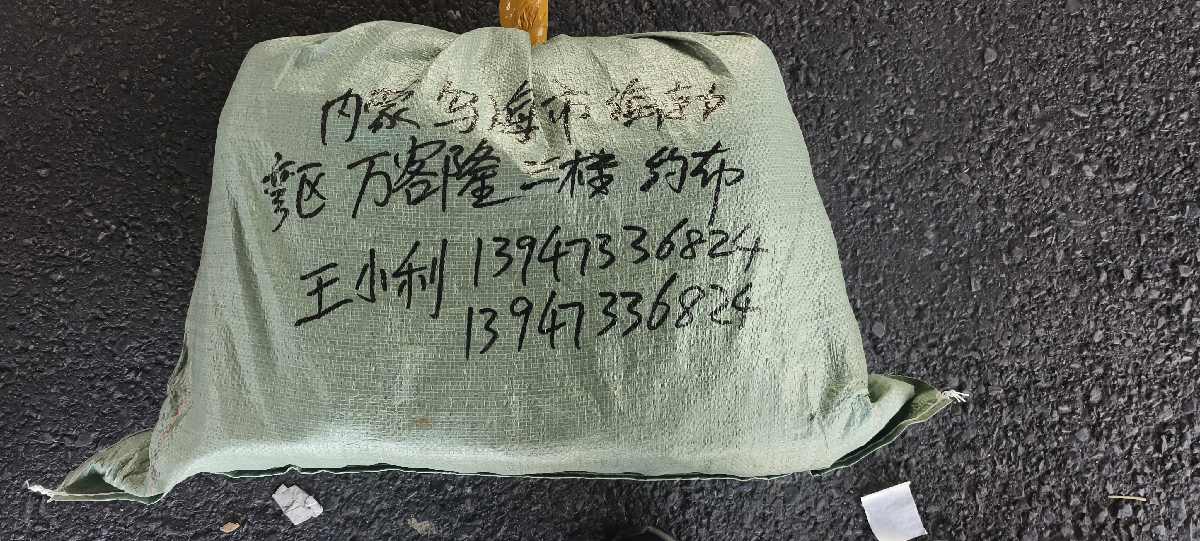 内蒙乌海市海勃
湾区 万客隆二楼 约布
王小利 13947336824
13947336824